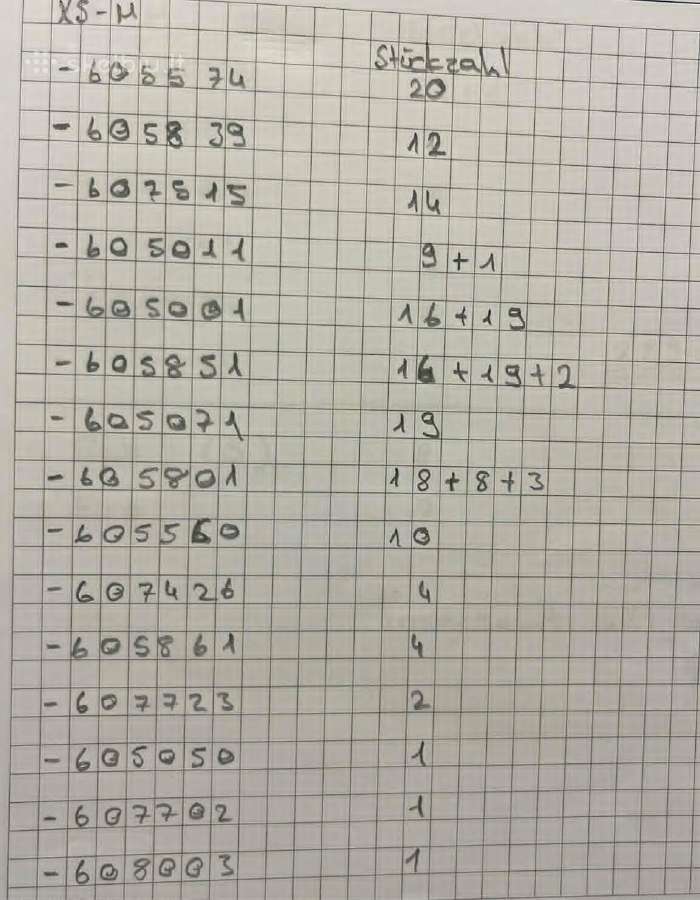 XS-M
Stückzahl
- 605574 20
- 605839 12
- 607515 14
- 605011 9+1
- 605001 16+19
- 605851 16+19+2
- 605071 19
- 605801 18+8+3
- 605560 10
- 607426 4
- 605861 4
- 607723 2
- 605050 1
- 607702 1
- 608003 1